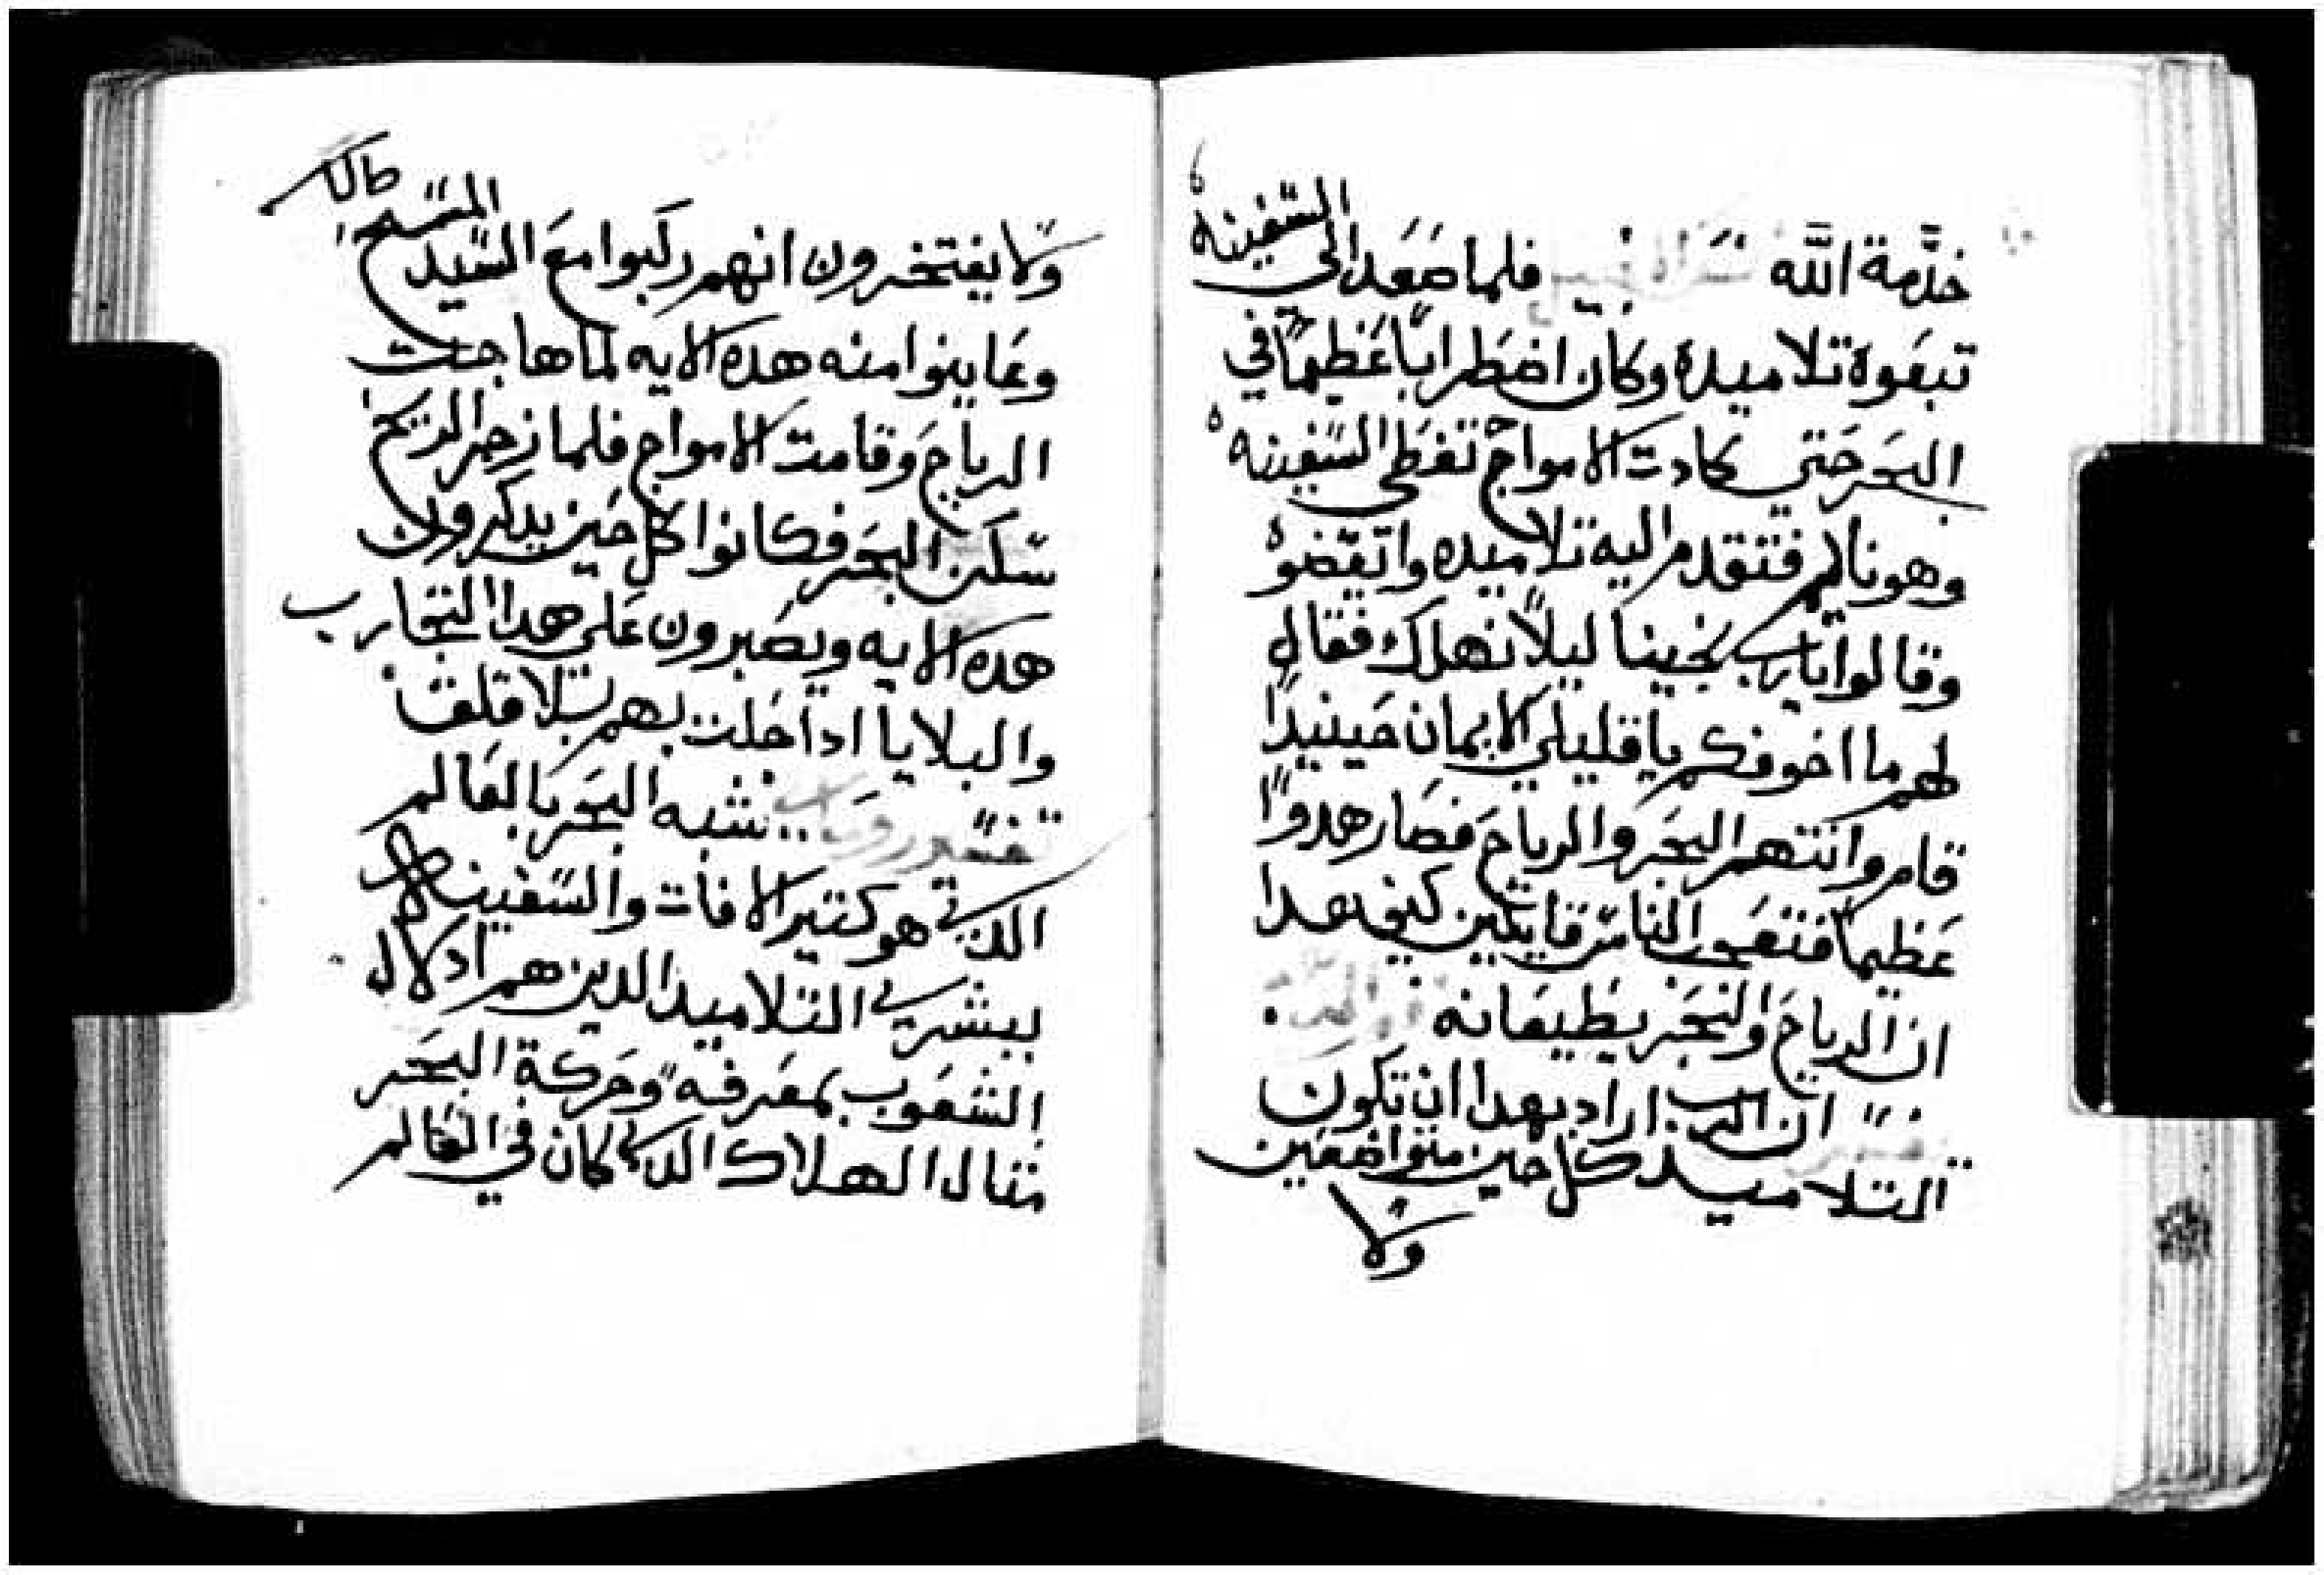 خدمة الله فلما صعد الى السفينه
تبعوه تلاميده وكان اضطرابا عظيما في
البحر حتى كادت الامواج تغطي السفينه
وهو نايم فتقدم اليه تلاميده وايقضوه
وقالوا يا رب نجينا ليلا نهلك فقال
لهم ما اخوفكم يا قليلي الايمان حينيدا
قام وانتهر البحر والرياح فصار هدوا
عظيما فتعجب الناس قايلين كيف هدا
ان الرياح والبحر يطيعانه
ان الرب اراد بهدا ان تكون
التلاميد كل حين متواضعين
ولا
ولا يفتخرون انهم ركبوا مع السيد المسيح
وعاينوا منه هده الايه لما هاجت
الرياح وقامت الامواج فلما زجر الريح
سكن البحر فكانوا كل حين يدكرون
هده الايه ويصبرون على هدا التجارب
والبلايا ادا حلت بهم بلا قلق
تفسير شبه البحر بالعالم
الدي هو كتير الافات والسفينه
ببشري التلاميد الدين هم ادلال
الشعوب بمعرفه وحركة البحر
متال الهلاك الدي كان في العالم